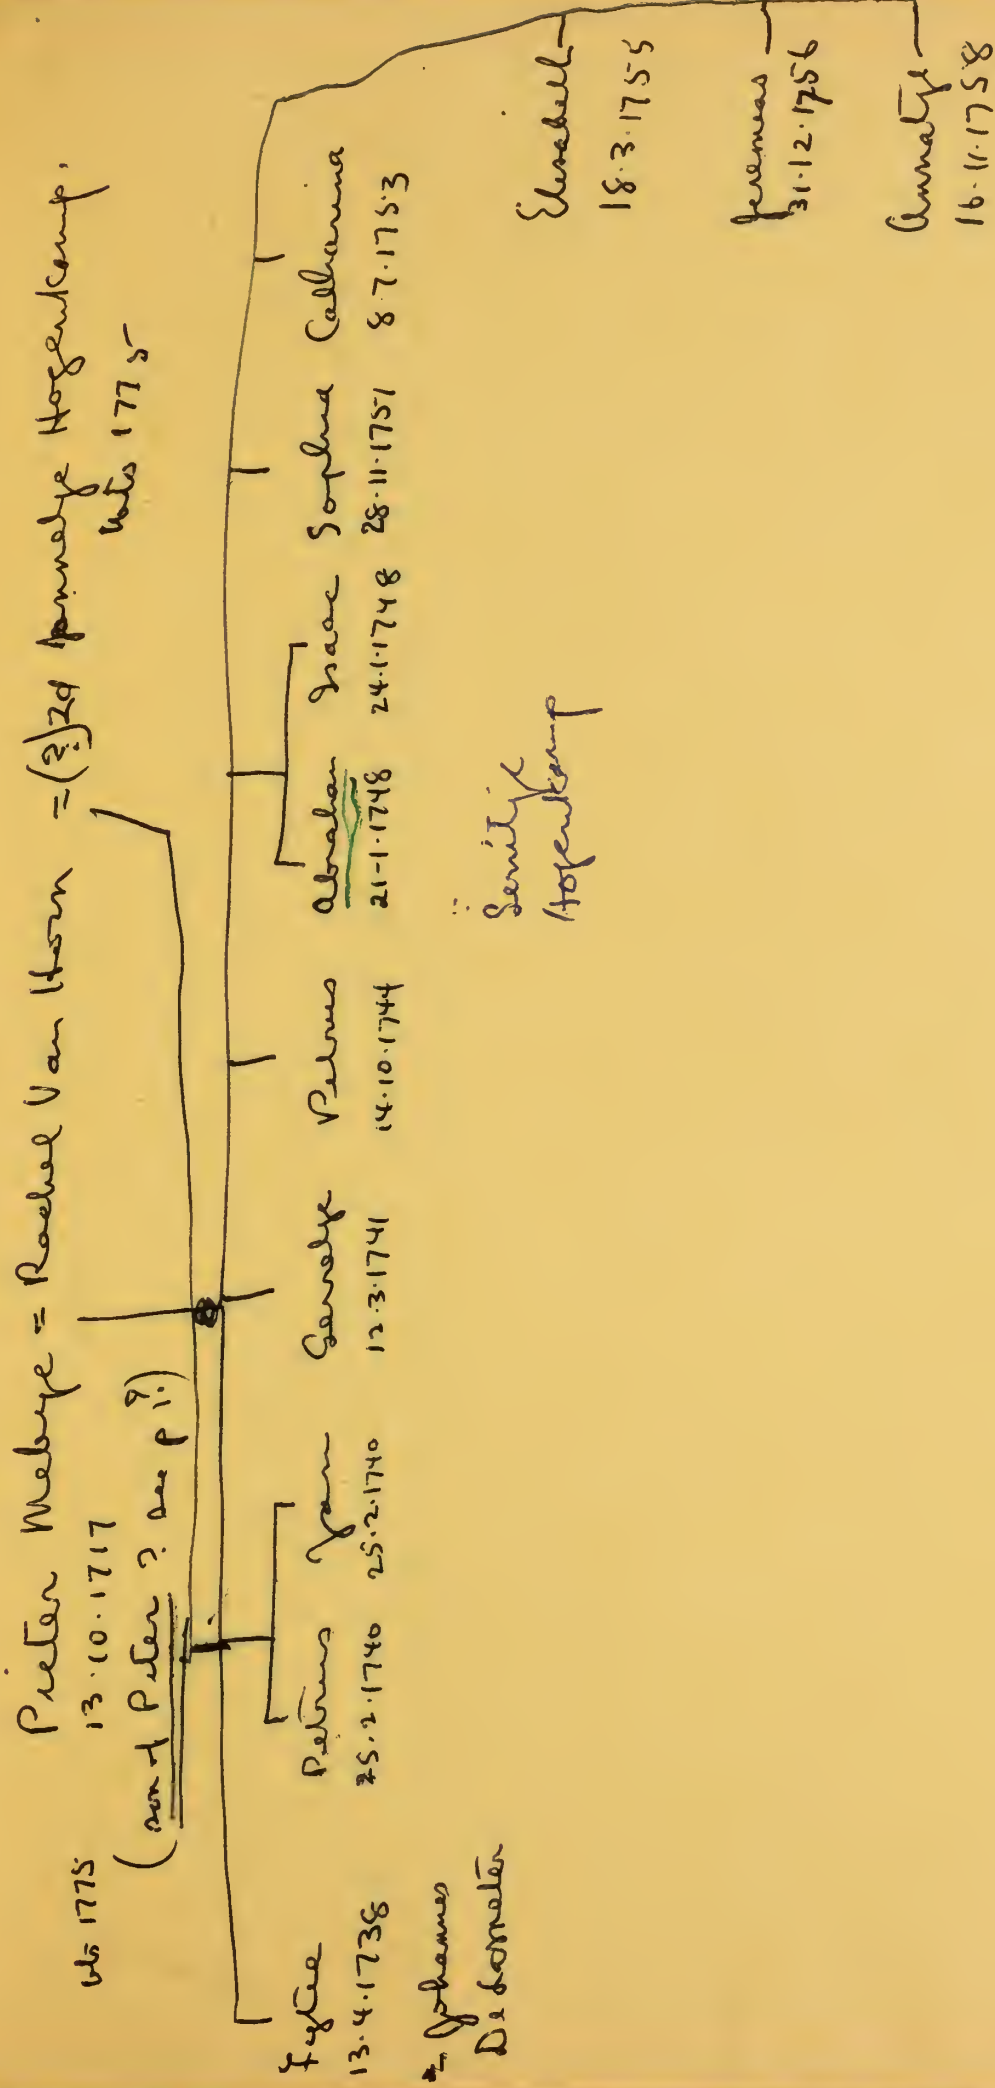 Pieter Mebye = Rachel Van Horn = (?) 2d Jannetje Hogenkamp.
wts 1775
13.10.1717
wts 1775
(son of Peter? see p 1?)
Fytie
13.4.1738
= Johannes
De Lameter
Petrus
25.2.1740
Jan
25.2.1740
Gerretje
12.3.1741
Petrus
14.10.1744
Abraham
21-1-1748
=
Gerritje
Hogenkamp
Isaac
24.1.1748
Sophia
28.11.1751
Catharina
8.7.1753
Elisabeth
18.3.1755
Jeremias
31.12.1756
Annatje
16.11.1758